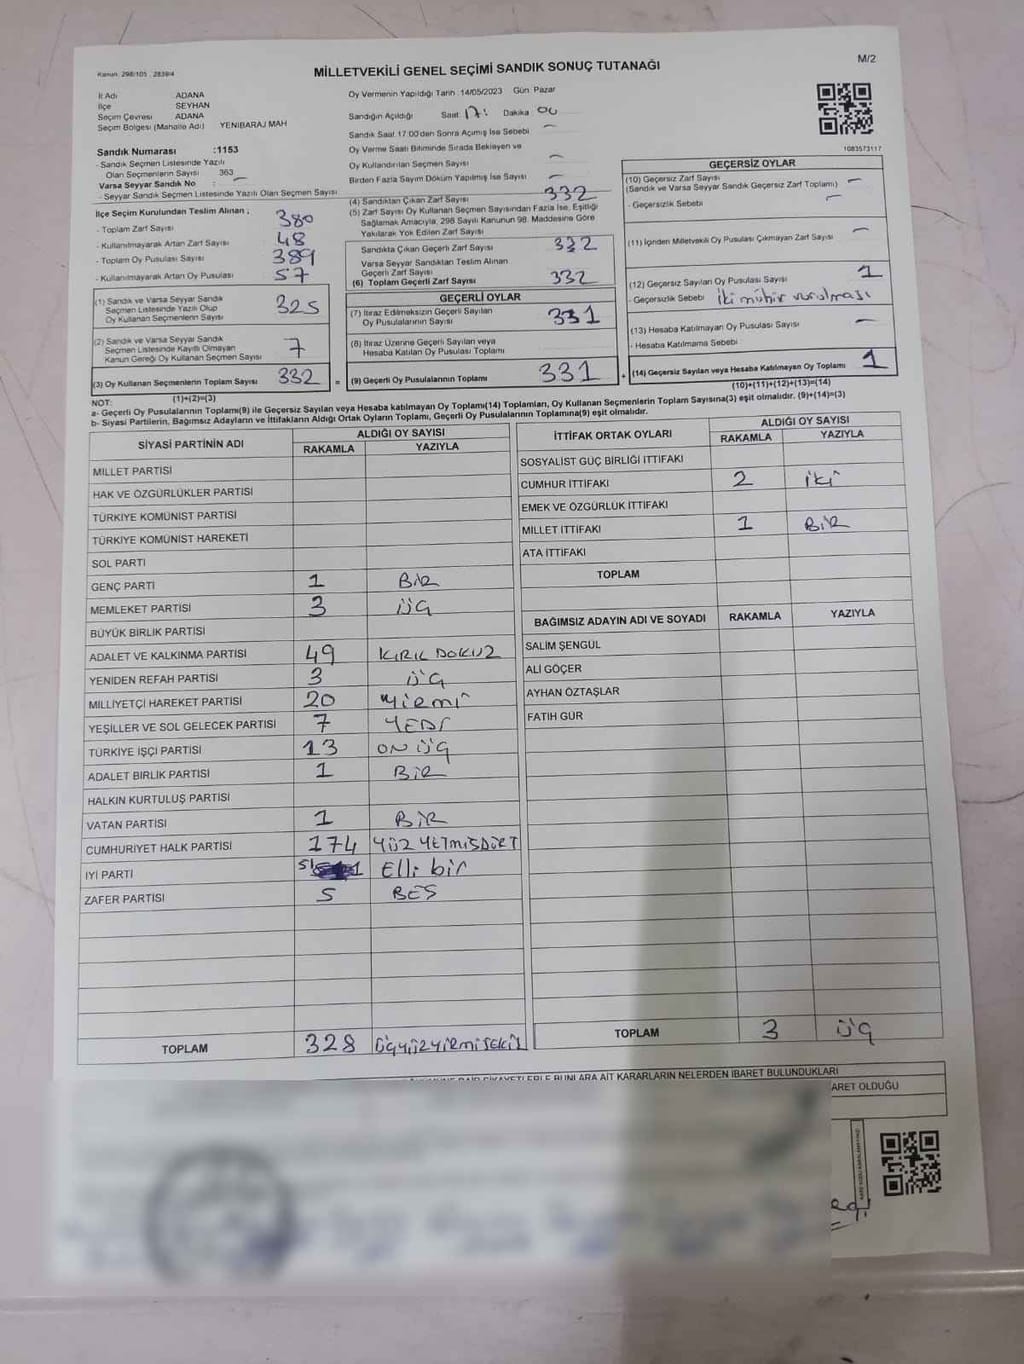 Kanun: 298/105 , 2839/4
MİLLETVEKİLİ GENEL SEÇİMİ SANDIK SONUÇ TUTANAĞI
M/2
İl Adı ADANA
İlçe SEYHAN
Seçim Çevresi ADANA
Seçim Bölgesi (Mahalle Adı) YENİBARAJ MAH
Sandık Numarası :1153
- Sandık Seçmen Listesinde Yazılı
Olan Seçmenlerin Sayısı 363
Varsa Seyyar Sandık No :
- Seyyar Sandık Seçmen Listesinde Yazılı Olan Seçmen Sayısı
İlçe Seçim Kurulundan Teslim Alınan ;
- Toplam Zarf Sayısı 380
- Kullanılmayarak Artan Zarf Sayısı 48
- Toplam Oy Pusulası Sayısı 389
- Kullanılmayarak Artan Oy Pusulası 57
(1) Sandık ve Varsa Seyyar Sandık
Seçmen Listesinde Yazılı Olup
Oy Kullanan Seçmenlerin Sayısı 325
(2) Sandık ve Varsa Seyyar Sandık
Seçmen Listesinde Kayıtlı Olmayan
Kanun Gereği Oy Kullanan Seçmen Sayısı 7
(3) Oy Kullanan Seçmenlerin Toplam Sayısı 332
(1)+(2)=(3)
Oy Vermenin Yapıldığı Tarih :14/05/2023 Gün Pazar
Sandığın Açıldığı Saat 17: Dakika 00
Sandık Saat 17:00'den Sonra Açımış İse Sebebi –
Oy Verme Saati Bitiminde Sırada Bekleyen ve
Oy Kullandırılan Seçmen Sayısı –
Birden Fazla Sayım Döküm Yapılmış İse Sayısı –
(4) Sandıktan Çıkan Zarf Sayısı 332
(5) Zarf Sayısı Oy Kullanan Seçmen Sayısından Fazla İse, Eşitliği
Sağlamak Amacıyla, 298 Sayılı Kanunun 98. Maddesine Göre
Yakılarak Yok Edilen Zarf Sayısı
Sandıkta Çıkan Geçerli Zarf Sayısı 332
Varsa Seyyar Sandıktan Teslim Alınan
Geçerli Zarf Sayısı
(6) Toplam Geçerli Zarf Sayısı 332
GEÇERLİ OYLAR
(7) İtiraz Edilmeksizin Geçerli Sayılan
Oy Pusulalarının Sayısı 331
(8) İtiraz Üzerine Geçerli Sayılan veya
Hesaba Katılan Oy Pusulası Toplamı
= (9) Geçerli Oy Pusulalarının Toplamı 331
1083573117
GEÇERSİZ OYLAR
(10) Geçersiz Zarf Sayısı –
(Sandık ve Varsa Seyyar Sandık Geçersiz Zarf Toplamı)
- Geçersizlik Sebebi –
(11) İçinden Milletvekili Oy Pusulası Çıkmayan Zarf Sayısı –
(12) Geçersiz Sayılan Oy Pusulası Sayısı 1
- Geçersizlik Sebebi İki mühür vurulması
(13) Hesaba Katılmayan Oy Pusulası Sayısı –
- Hesaba Katılmama Sebebi
+ (14) Geçersiz Sayılan veya Hesaba Katılmayan Oy Toplamı 1
(10)+(11)+(12)+(13)=(14)
NOT:
a- Geçerli Oy Pusulalarının Toplamı(9) ile Geçersiz Sayılan veya Hesaba katılmayan Oy Toplamı(14) Toplamları, Oy Kullanan Seçmenlerin Toplam Sayısına(3) eşit olmalıdır. (9)+(14)=(3)
b- Siyasi Partilerin, Bağımsız Adayların ve İttifakların Aldığı Ortak Oyların Toplamı, Geçerli Oy Pusulalarının Toplamına(9) eşit olmalıdır.
SİYASİ PARTİNİN ADI ALDIĞI OY SAYISI
RAKAMLA YAZIYLA
MİLLET PARTİSİ
HAK VE ÖZGÜRLÜKLER PARTİSİ
TÜRKİYE KOMÜNİST PARTİSİ
TÜRKİYE KOMÜNİST HAREKETİ
SOL PARTİ
GENÇ PARTİ 1 BİR
MEMLEKET PARTİSİ 3 ÜÇ
BÜYÜK BİRLİK PARTİSİ
ADALET VE KALKINMA PARTİSİ 49 KIRK DOKUZ
YENİDEN REFAH PARTİSİ 3 ÜÇ
MİLLİYETÇİ HAREKET PARTİSİ 20 YİRMİ
YEŞİLLER VE SOL GELECEK PARTİSİ 7 YEDİ
TÜRKİYE İŞÇİ PARTİSİ 13 ON ÜÇ
ADALET BİRLİK PARTİSİ 1 BİR
HALKIN KURTULUŞ PARTİSİ
VATAN PARTİSİ 1 BİR
CUMHURİYET HALK PARTİSİ 174 YÜZ YETMİŞDÖRT
İYİ PARTİ 51 Elli bir
ZAFER PARTİSİ 5 BEŞ
TOPLAM 328 ÜÇYÜZYİRMİSEKİZ
İTTİFAK ORTAK OYLARI ALDIĞI OY SAYISI
RAKAMLA YAZIYLA
SOSYALİST GÜÇ BİRLİĞİ İTTİFAKI
CUMHUR İTTİFAKI 2 İKİ
EMEK VE ÖZGÜRLÜK İTTİFAKI
MİLLET İTTİFAKI 1 BİR
ATA İTTİFAKI
TOPLAM
BAĞIMSIZ ADAYIN ADI VE SOYADI RAKAMLA YAZIYLA
SALİM ŞENGÜL
ALİ GÖÇER
AYHAN ÖZTAŞLAR
FATİH GÜR
TOPLAM 3 ÜÇ
ARA AİT KARARLARIN NELERDEN İBARET BULUNDUKLARI
ARET OLDUĞU